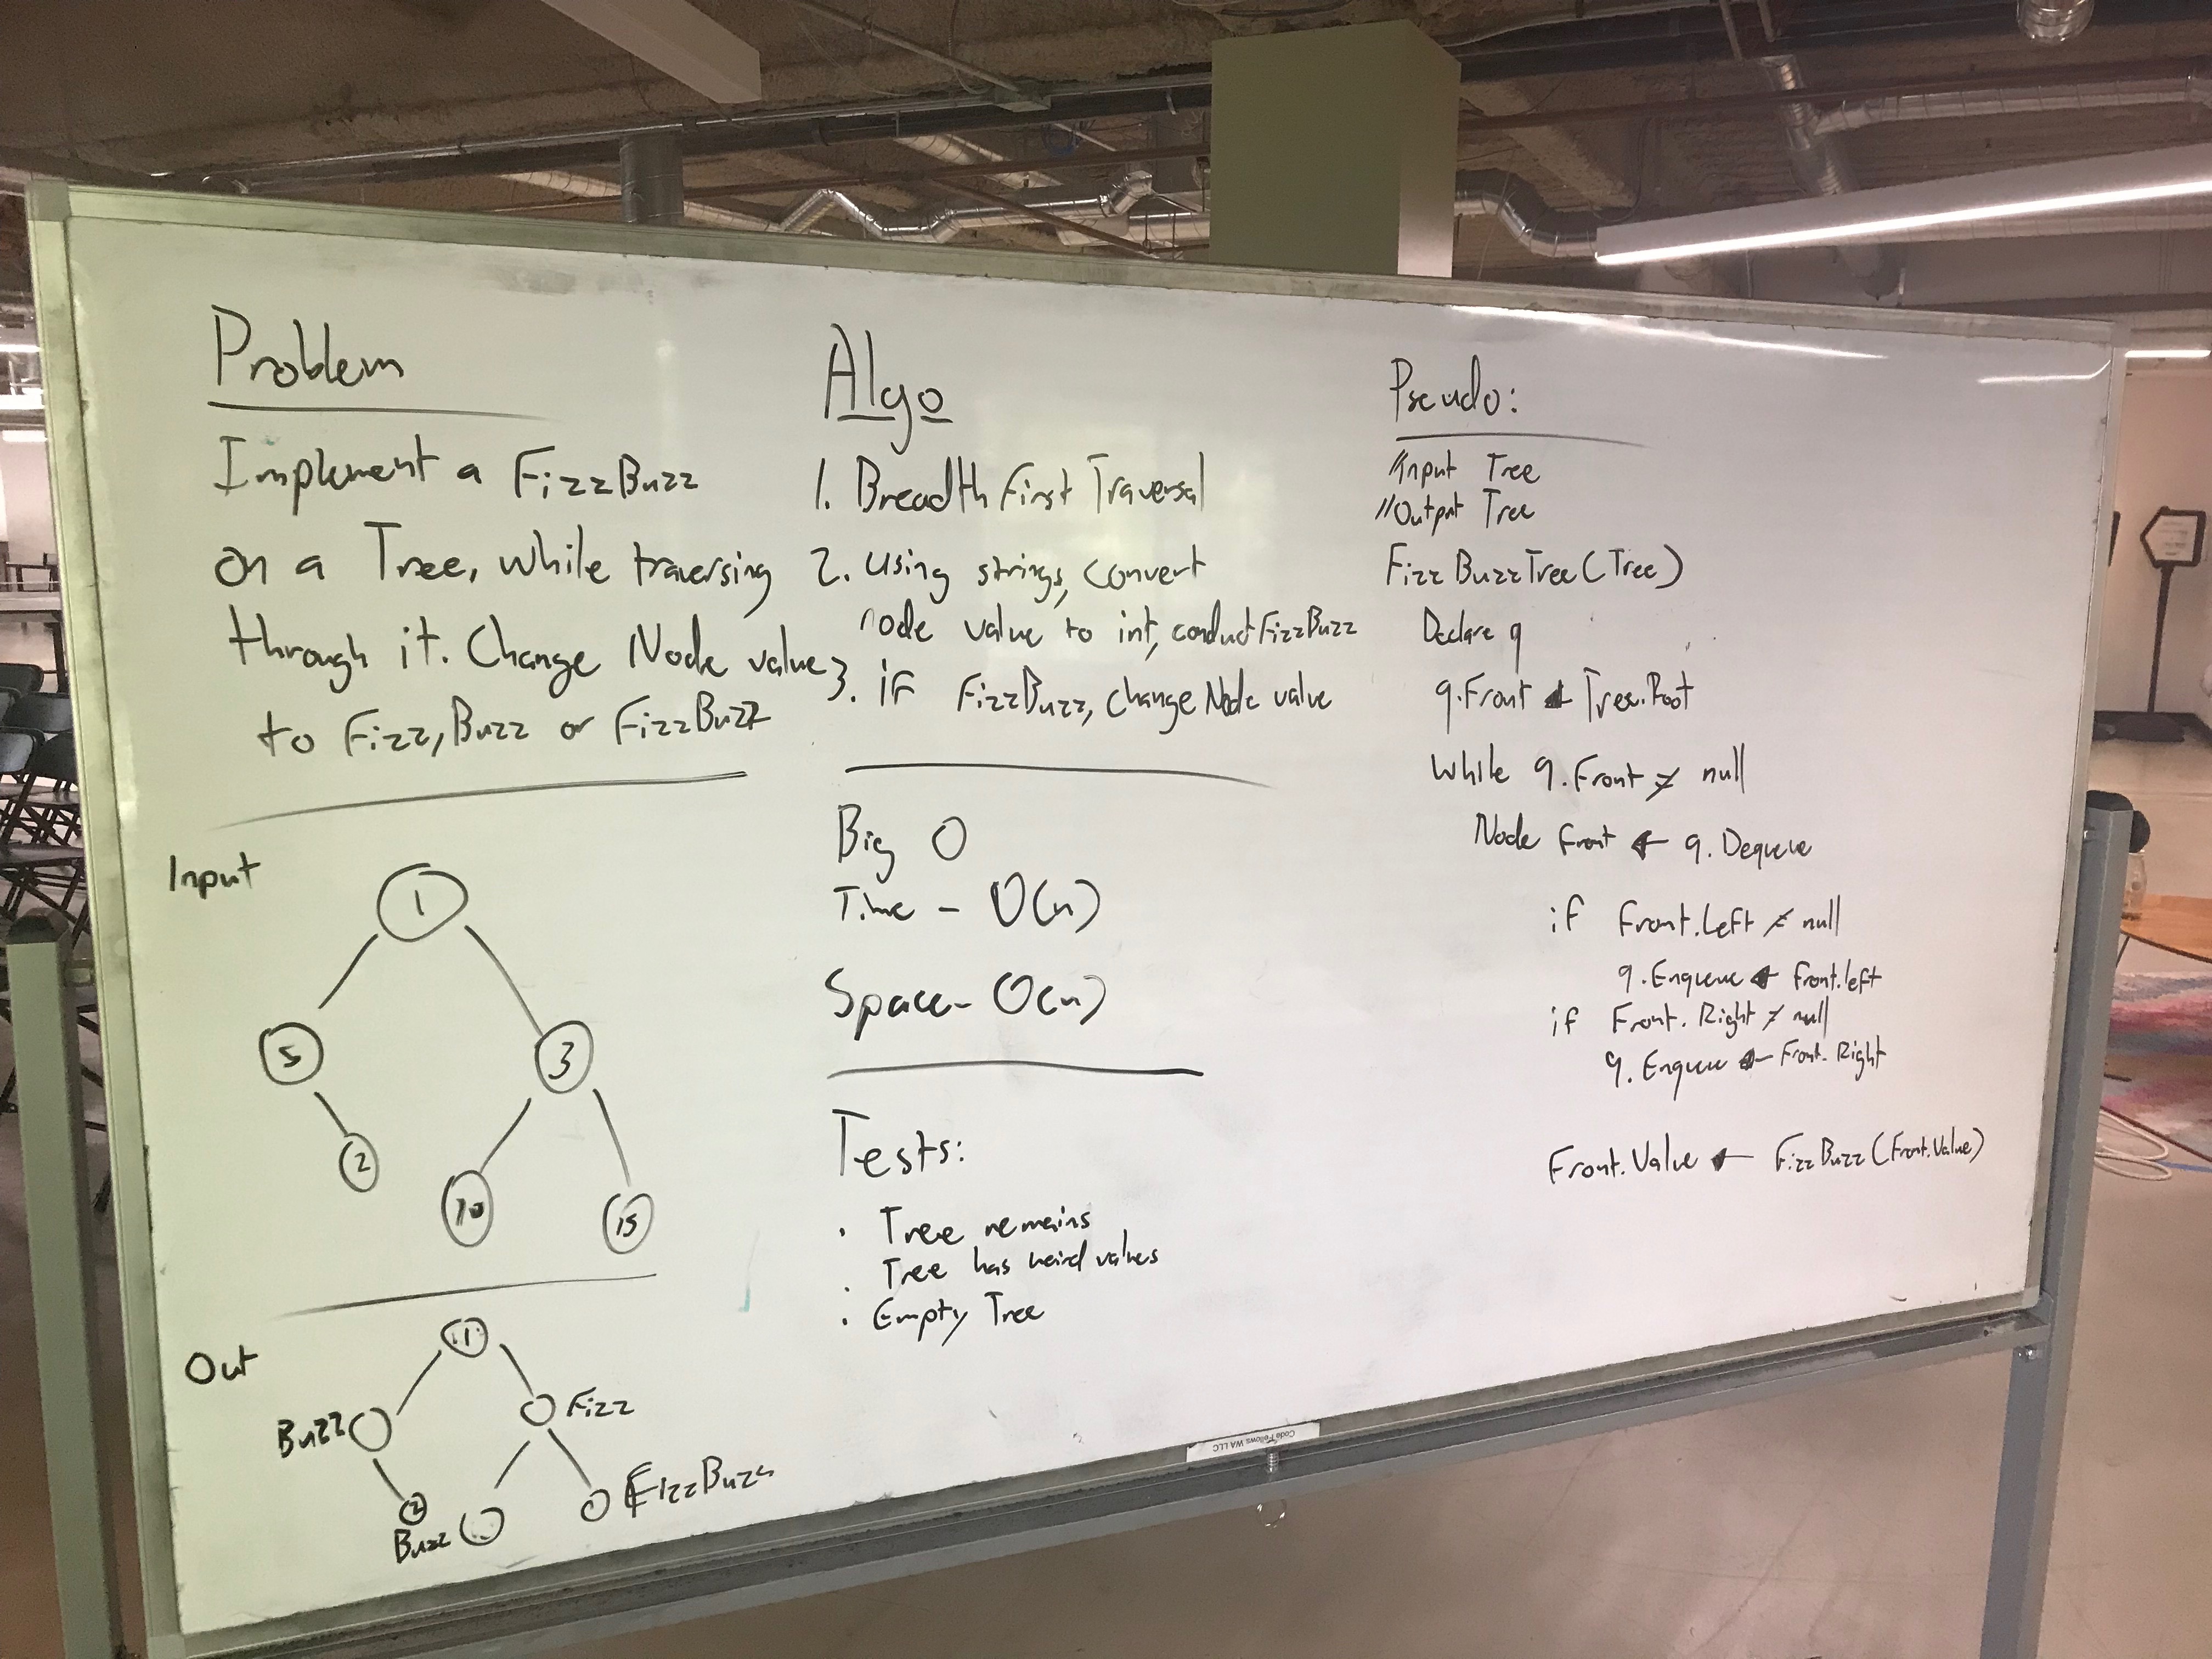 Problem
Implement a FizzBuzz
on a Tree, while traversing
through it. Change Node value
to Fizz, Buzz or FizzBuzz
Input
1
5
3
2
10
15
Out
1
Buzz
Fizz
2
Buzz
FizzBuzz
Algo
1. Breadth First Traversal
2. Using strings, convert
node value to int, conduct FizzBuzz
3. if FizzBuzz, change Node value
Big O
Time - O(n)
Space - O(n)
Tests:
• Tree remains
• Tree has weird values
• Empty Tree
Pseudo:
//Input Tree
//Output Tree
FizzBuzzTree(Tree)
Declare q
q.Front ← Tree.Root
While q.Front ≠ null
Node front ← q. Dequeue
if Front.Left ≠ null
q.Enqueue ← Front.left
if Front. Right ≠ null
q. Enqueue ← Front. Right
Front.Value ← FizzBuzz(Front.Value)
Code Fellows, WA LLC